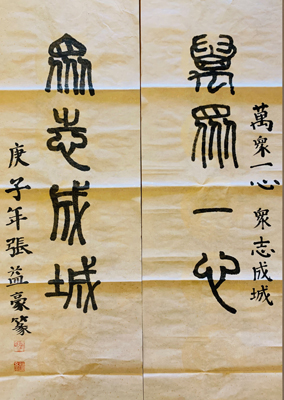 萬眾一心 眾志成城
萬眾一心
眾志成城
庚子年張益豪篆